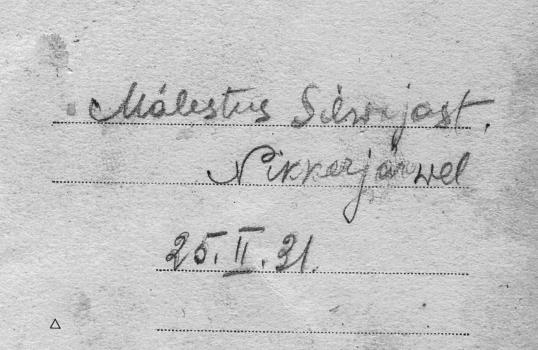 Mälestus Silwijast.
Nikkerjärwel
25. II. 31.